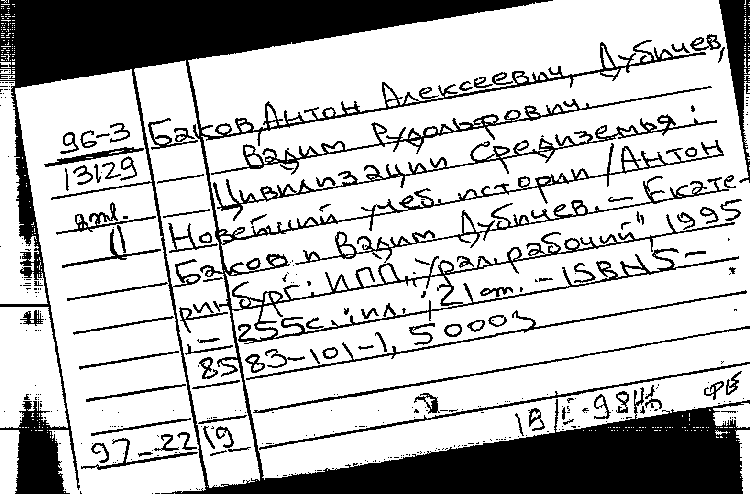 96-3 Баков, Антон Алексеевич, Дубичев,
13129 Вадим Рудольфович.
Цивилизации Средиземья :
Новейший учеб. истории / Антон
Баков и Вадим Дубичев. – Екате-
ринбург : ИПП „Урал. рабочий", 1995
. – 255с. : ил. ; 21 cm. – ISBN 5–
8583-101-1, 50003
97-22 19